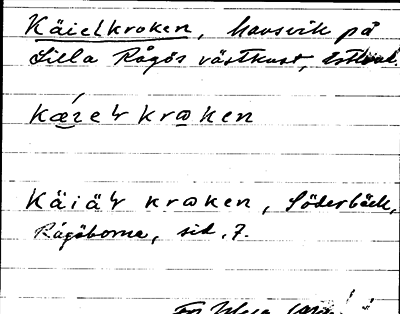 Käielkroken, havsvik på
Lilla Rågös västkust, Estland.
Kǽɪeꞎr krωken
Käiä'r krωken, Söderbäck,
Rågöborna, sid. 7.